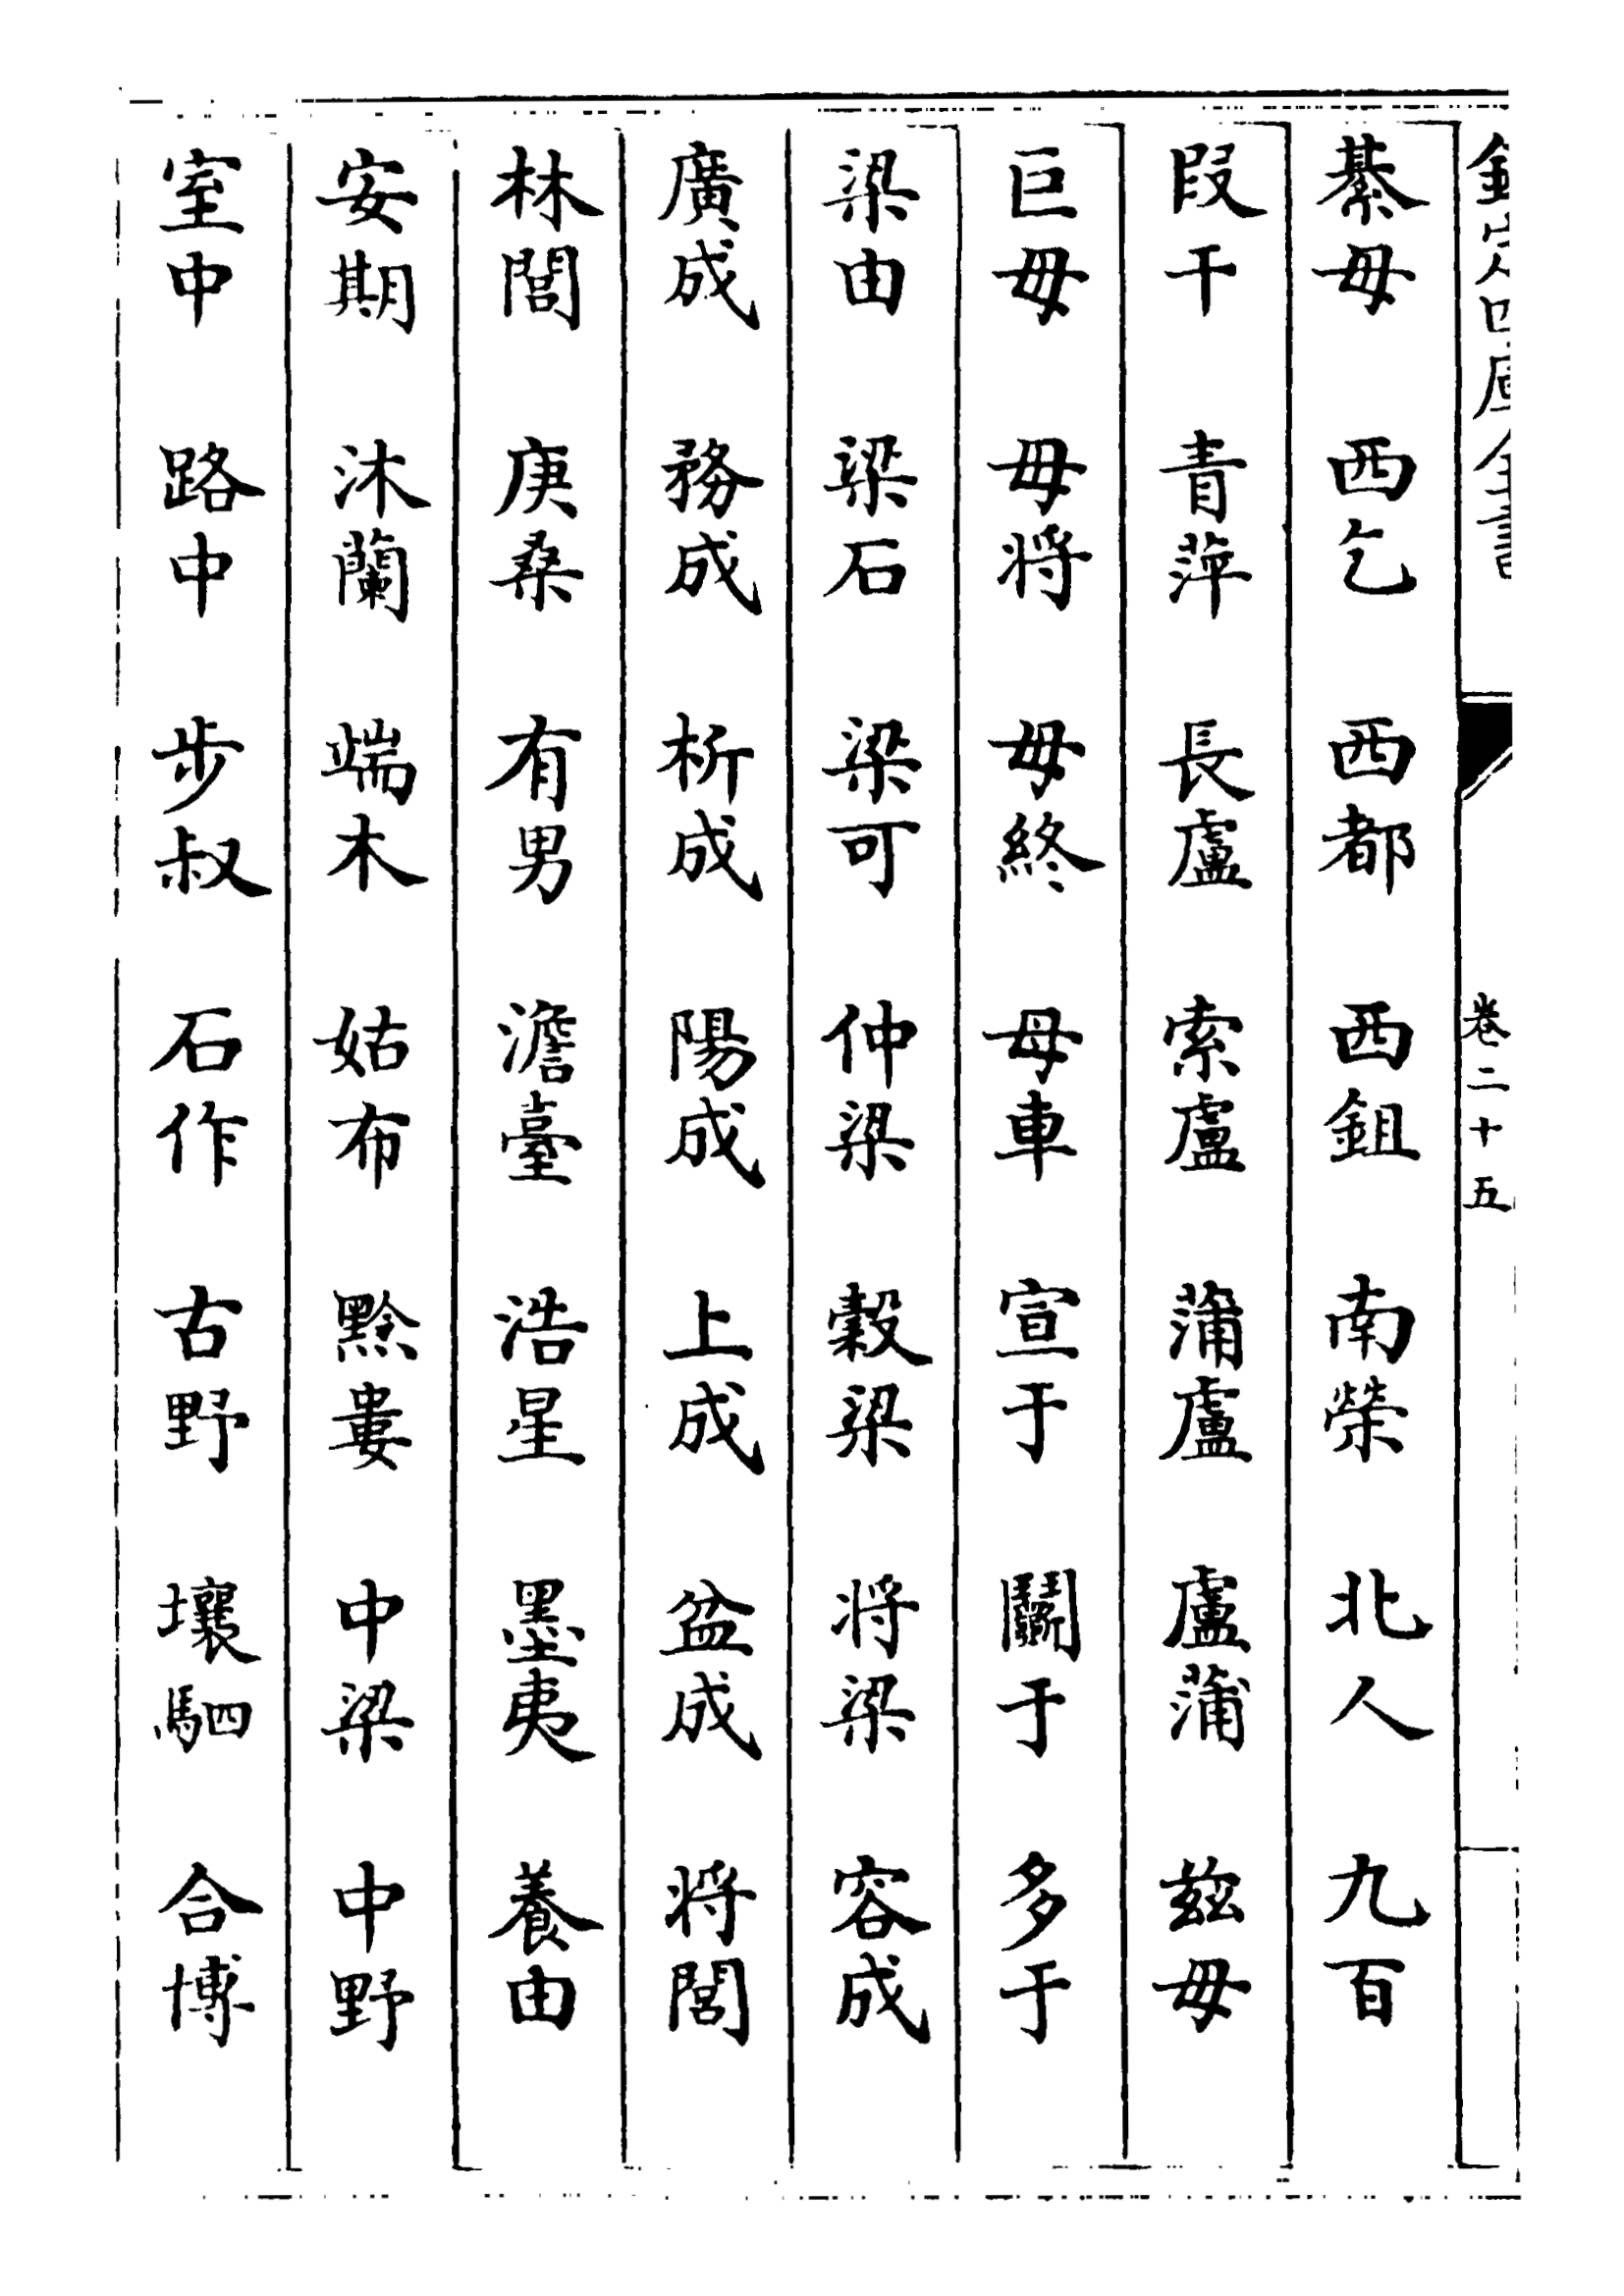 欽定四庫全書
卷二十五
綦毋 西乞 西都 西鉏 南榮 北人 九百
段干 青萍 長盧 索盧 蒲盧 盧蒲 茲毋
巨毋 毋将 毋終 母車 宣于 鬬于 多于
梁由 梁石 梁可 仲梁 穀梁 将梁 容成
廣成 務成 析成 陽成 上成 盆成 将閭
林閭 庚桑 有男 澹臺 浩星 墨夷 養由
安期 沐蘭 端木 姑布 黔婁 中梁 中野
室中 路中 步叔 石作 古野 壤駟 合博